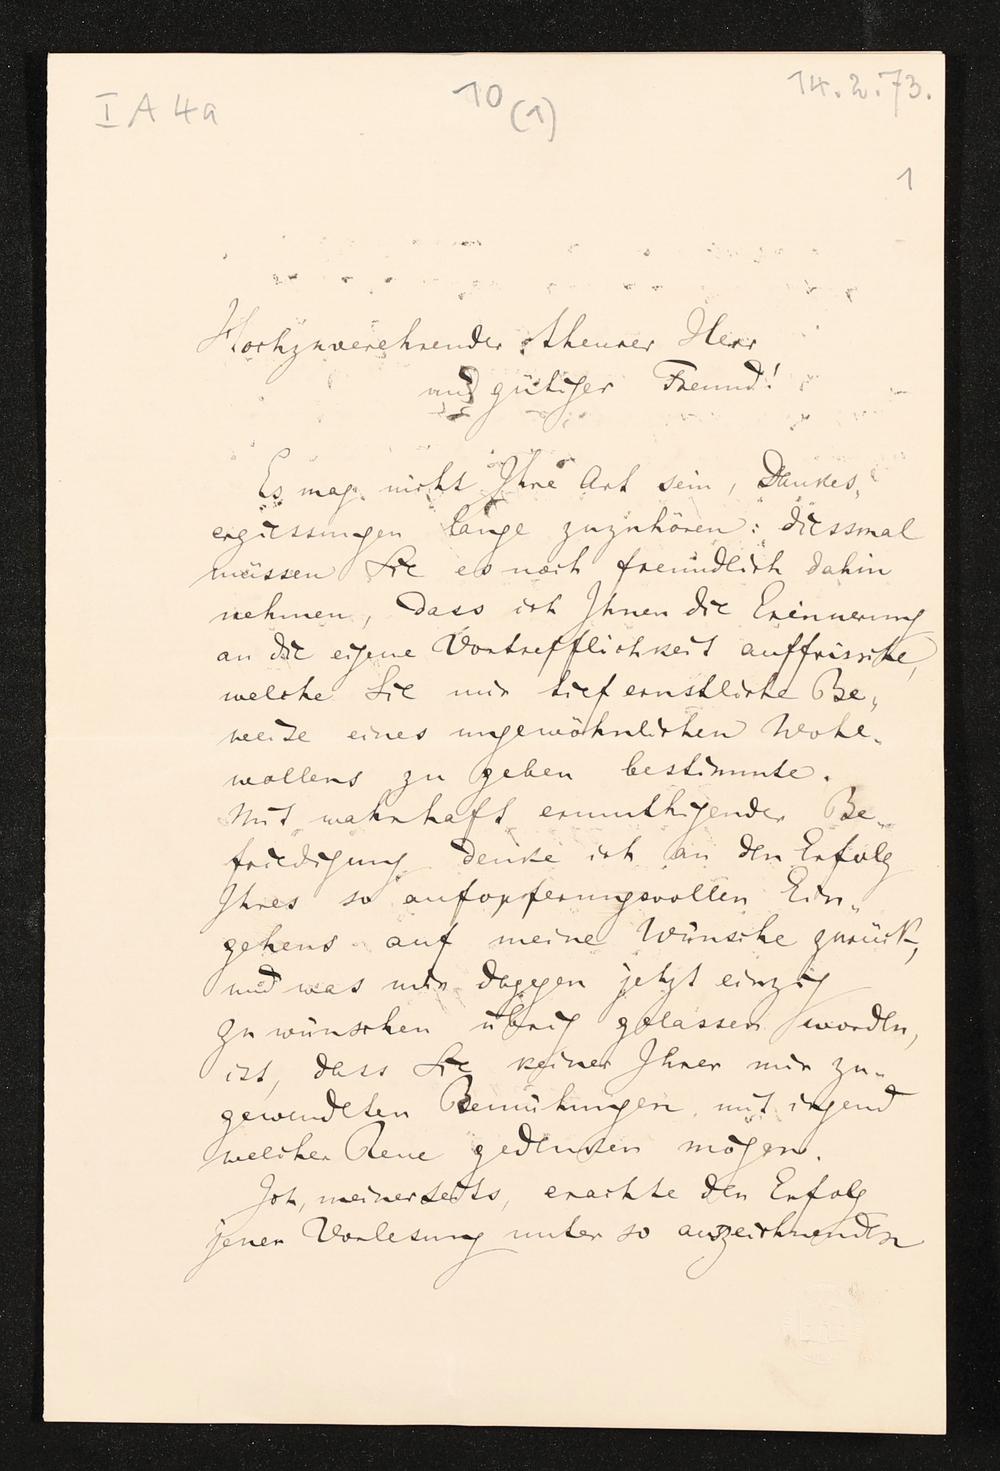 I A 4a
10 (1)
14.2.73.
1
Hochzuverehrender theurer Herr
und gütiger Freund!
Es mag nicht Ihre Art sein, Dankes„
ergiessungen lange zuzuhören: diessmal
müssen Sie es noch freundlich dahin
nehmen, dass ich Ihnen die Erinnerung
an die eigene Vortrefflichkeit auffrische,
welche Sie mir tief ernstliche Be„
weise eines ungewöhnlichen Wohl„
wollens zu geben bestimmte.
Mit wahrhaft ermuthigender Be„
friedigung denke ich an den Erfolg
Ihres so aufopferungsvollen Ein„
gehens auf meine Wünsche zurück,
und was mir dagegen jetzt einzig
zu wünschen übrig gelassen worden,
ist, dass Sie keiner Ihrer mir zu„
gewendeten Bemühungen mit irgend
welcher Reue gedenken mögen.
Ich, meinerseits, erachte den Erfolg
jener Vorlesung unter so auszeichnenden